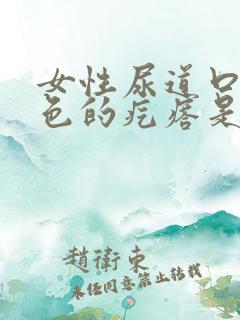 女性尿道口
色的疙瘩是
趙衛東
未经同意禁止转载